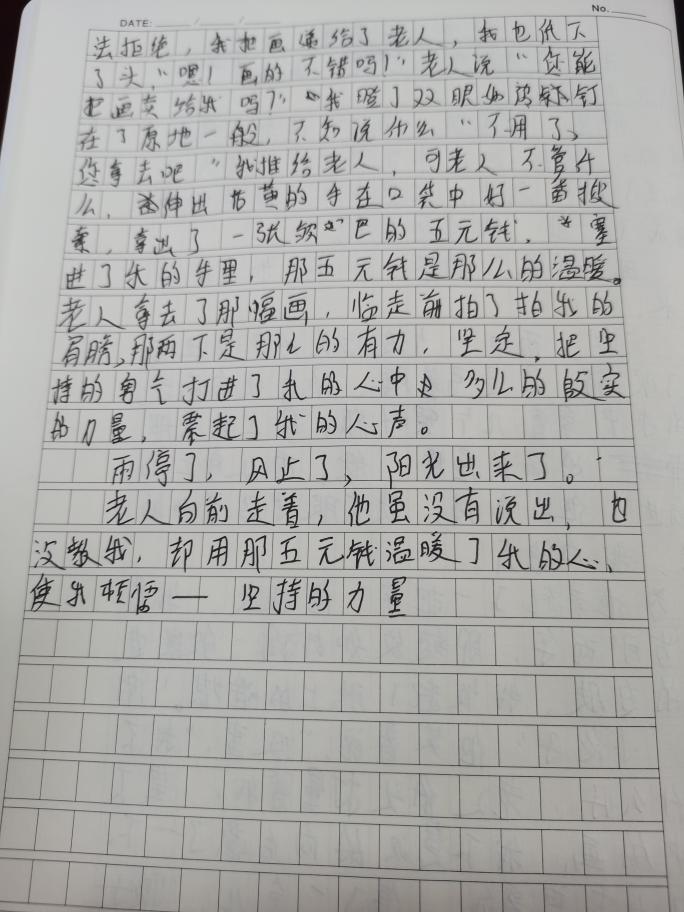 DATE: / / No.
法拒绝，我把画递给了老人，我也低下
了头，"嗯！画的不错吗！"老人说"您能
把画卖给我吗？""我瞪了双眼如被铁钉钉
在了原地一般，不知说什么"不用了、
您拿去吧"我推给老人，可老人不管什
么，伸出枯黄的手在口袋中好一番搜
索，拿出了一张皱巴巴的五元钱，塞
进了我的手里，那五元钱是那么的温暖。
老人拿去了那幅画，临走前拍了拍我的
肩膀，那两下是那么的有力，坚定，把坚
持的勇气打进了我的心中 多么的殷实
的力量，震起了我的心声。
雨停了，风止了，阳光出来了。
老人向前走着，他虽没有说出，也
没教我，却用那五元钱温暖了我的心、
使我顿悟——坚持的力量